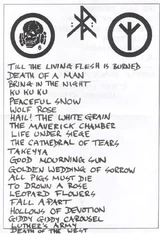 TILL THE LIVING FLESH IS BURNED
DEATH OF A MAN
BRING IN THE NIGHT
KU KU KU
PEACEFUL SNOW
WOLF ROSE
HAIL! THE WHITE GRAIN
THE MAVERICK CHAMBER
LIFE UNDER SIEGE
THE CATHEDRAL OF TEARS
TAKEYYA
GOOD MOURNING SUN
GOLDEN WEDDING OF SORROW
ALL PIGS MUST DIE
TO DROWN A ROSE
LEOPARD FLOWERS
FALL APART
HOLLOWS OF DEVOTION
GIDDY GIDDY CAROUSEL
LUTHER'S ARMY
DEATH OF THE WEST